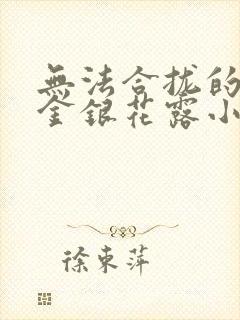 無法合拢的
金銀花露小
徐東萍